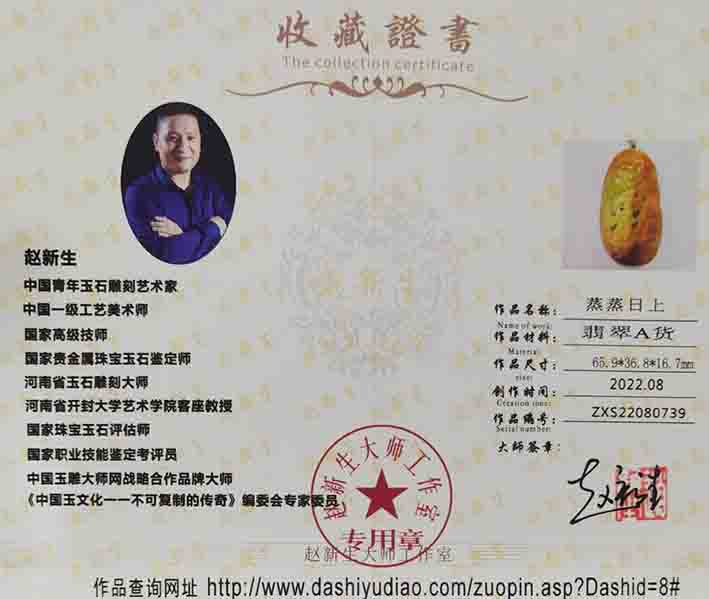 收藏證書
The collection certificate
赵新生
中国青年玉石雕刻艺术家
中国一级工艺美术师
国家高级技师
国家贵金属珠宝玉石鉴定师
河南省玉石雕刻大师
河南省开封大学艺术学院客座教授
国家珠宝玉石评估师
国家职业技能鉴定考评员
中国玉雕大师网战略合作品牌大师
《中国玉文化一一不可复制的传奇》编委会专家委员
作品名称: 蒸蒸日上
Name of work:
作品材料: 翡翠A货
Material:
作品尺寸: 65.9*36.8*16.7mm
size:
创作时间: 2022.08
Creation time:
作品编号: ZXS22080739
Serial number:
大師签章:
赵新生
赵新生大师工作室
专用章
赵新生大师工作室
作品查询网址 http://www.dashiyudiao.com/zuopin.asp?Dashid=8#